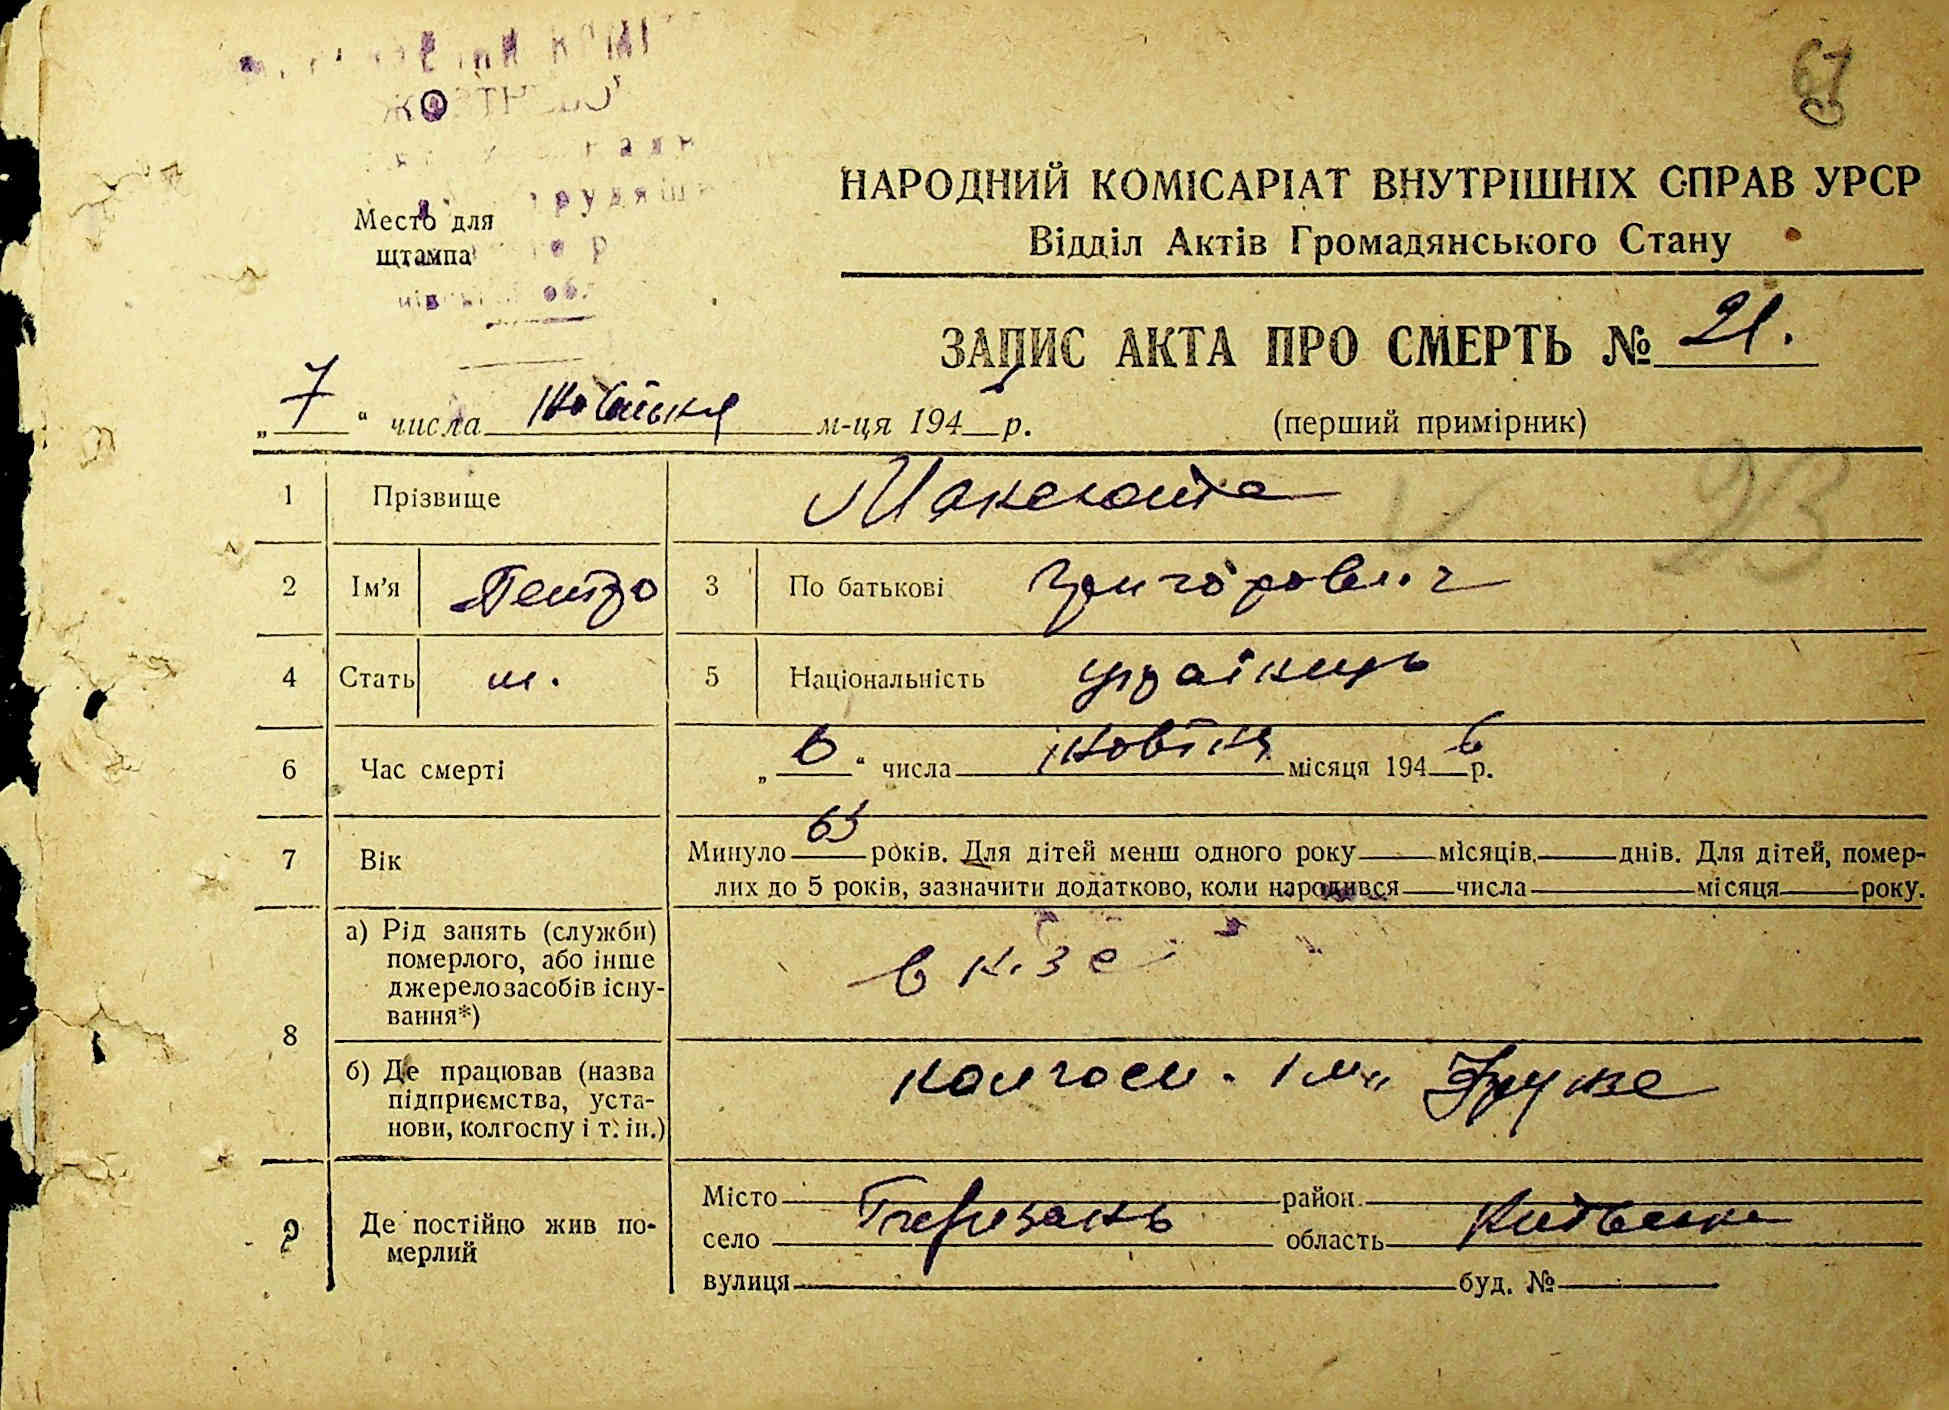 67
НАРОДНИЙ КОМІСАРІАТ ВНУТРІШНІХ СПРАВ УРСР
Відділ Актів Громадянського Стану
Место для
штампа
ЗАПИС АКТА ПРО СМЕРТЬ № 21.
„7“ числа м-ця 194 р. (перший примірник)
23
1 Прізвище
2 Ім'я Петро 3 По батькові Григорович
4 Стать м. 5 Національність українець
6 Час смерті „6“ числа місяця 1946 р.
7 Вік Минуло 65 років. Для дітей менш одного року місяців, днів. Для дітей, помер-
лих до 5 років, зазначити додатково, коли народився числа місяця року.
8 а) Рід занять (служби) померлого, або інше джерело засобів існу-вання*) в к-зе
б) Де працював (назва підприємства, уста-нови, колгоспу і т. ін.) колгосп. ім.
9 Де постійно жив по-мерлий
Місто район
село область Київська
вулиця буд. №